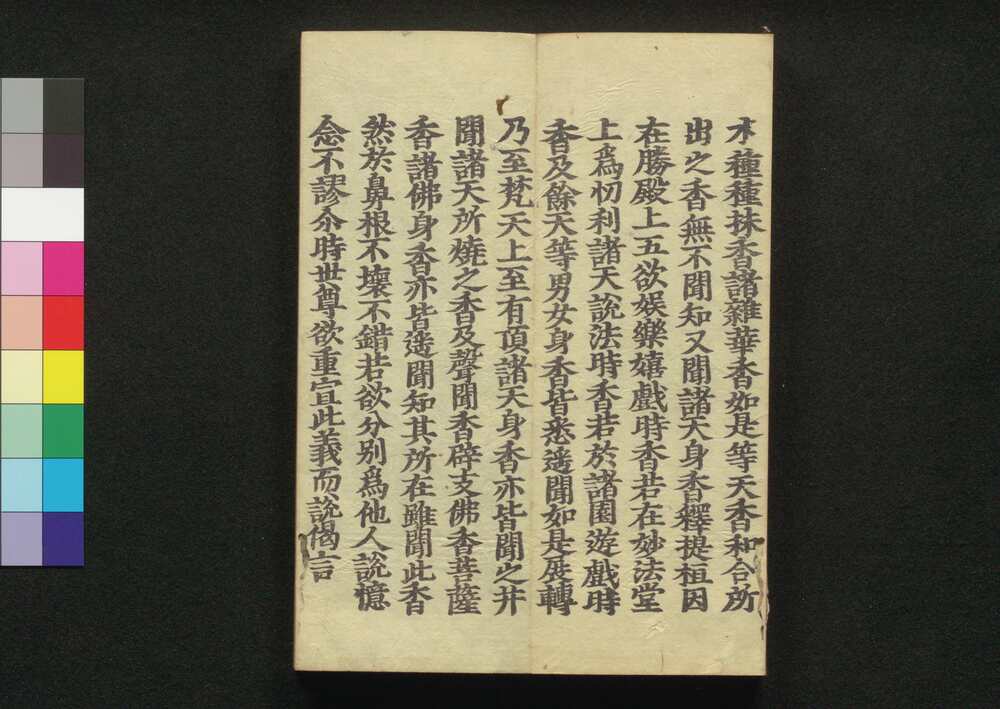 木種種抹香諸雜華香如是等天香和合所
出之香無不聞知又聞諸天身香釋提桓因
在勝殿上五欲娛樂嬉戲時香若在妙法堂
上爲忉利諸天說法時香若於諸園遊戲時
香及餘天等男女身香皆悉遙聞如是展轉
乃至梵天上至有頂諸天身香亦皆聞之幷
聞諸天所燒之香及聲聞香辟支佛香菩薩
香諸佛身香亦皆遙聞知其所在雖聞此香
然於鼻根不壞不錯若欲分別爲他人說憶
念不謬尒時世尊欲重宣此義而說偈言